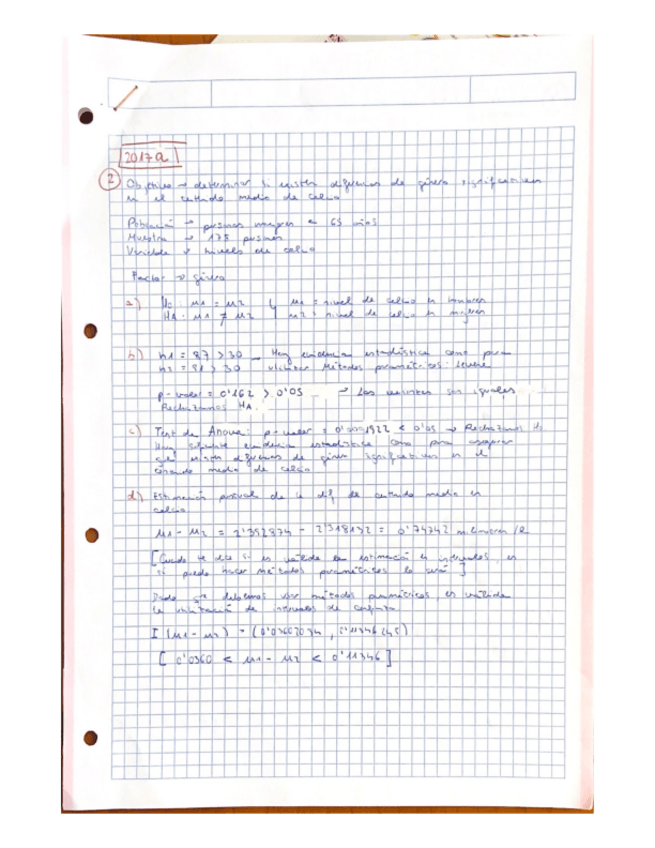 2017a
② Objetivo → determinar si existen diferencias de género significativas
en el contenido medio de calcio
Población → personas mayores a 65 años
Muestra → 178 personas
Variable → niveles de calcio
Factor → género
a) H0: μ1 = μ2 μ1 = nivel de calcio en hombres
HA: μ1 ≠ μ2 μ2 = nivel de calcio en mujeres
b) n1 = 87 > 30 → Hay evidencia estadística como para
n2 = 91 > 30 utilizar métodos paramétricos. Levene
p-valor = 0'162 > 0'05 → Las varianzas son iguales
Rechazamos HA
c) Test de Anova: p-valor = 0'0001922 < 0'05 → Rechazamos H0
Hay suficiente evidencia estadística como para asegurar
que existen diferencias de género significativas en el
contenido medio de calcio
d) Estimación puntual de la dif de contenido medio en
calcio
μ1 - μ2 = 2'392874 - 2'318132 = 0'74742
[Cuando te dice si es válida la estimación en intervalos, es
si puedo hacer métodos paramétricos lo será]
Dado que debemos usar métodos paramétricos, es válida
la utilización de intervalos de confianza
I (μ1 - μ2) = (0'03602034 ,
[ 0'0360 < μ1 - μ2 < 0'11346 ]